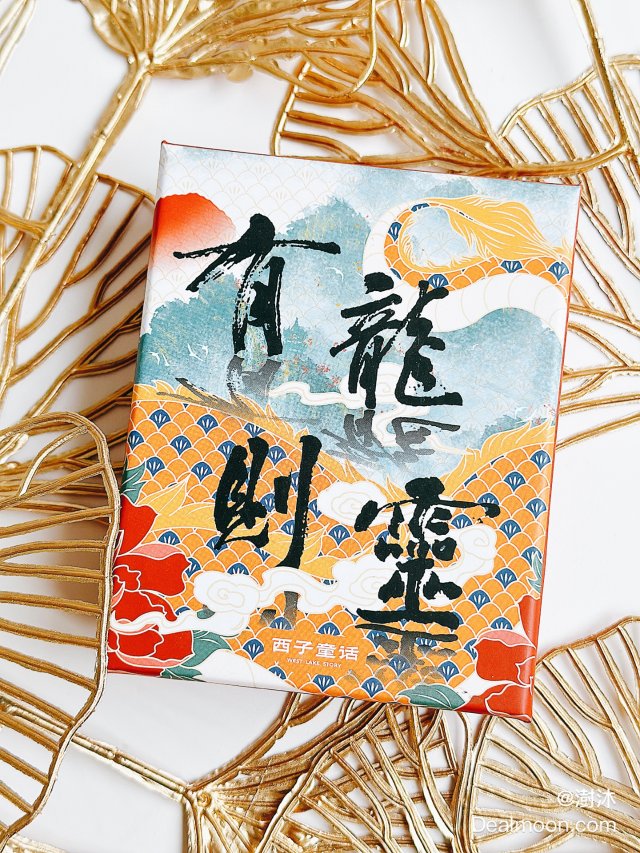 有龍
則靈
西子童话
WEST LAKE STORY
@澍沐
Dealmoon.com